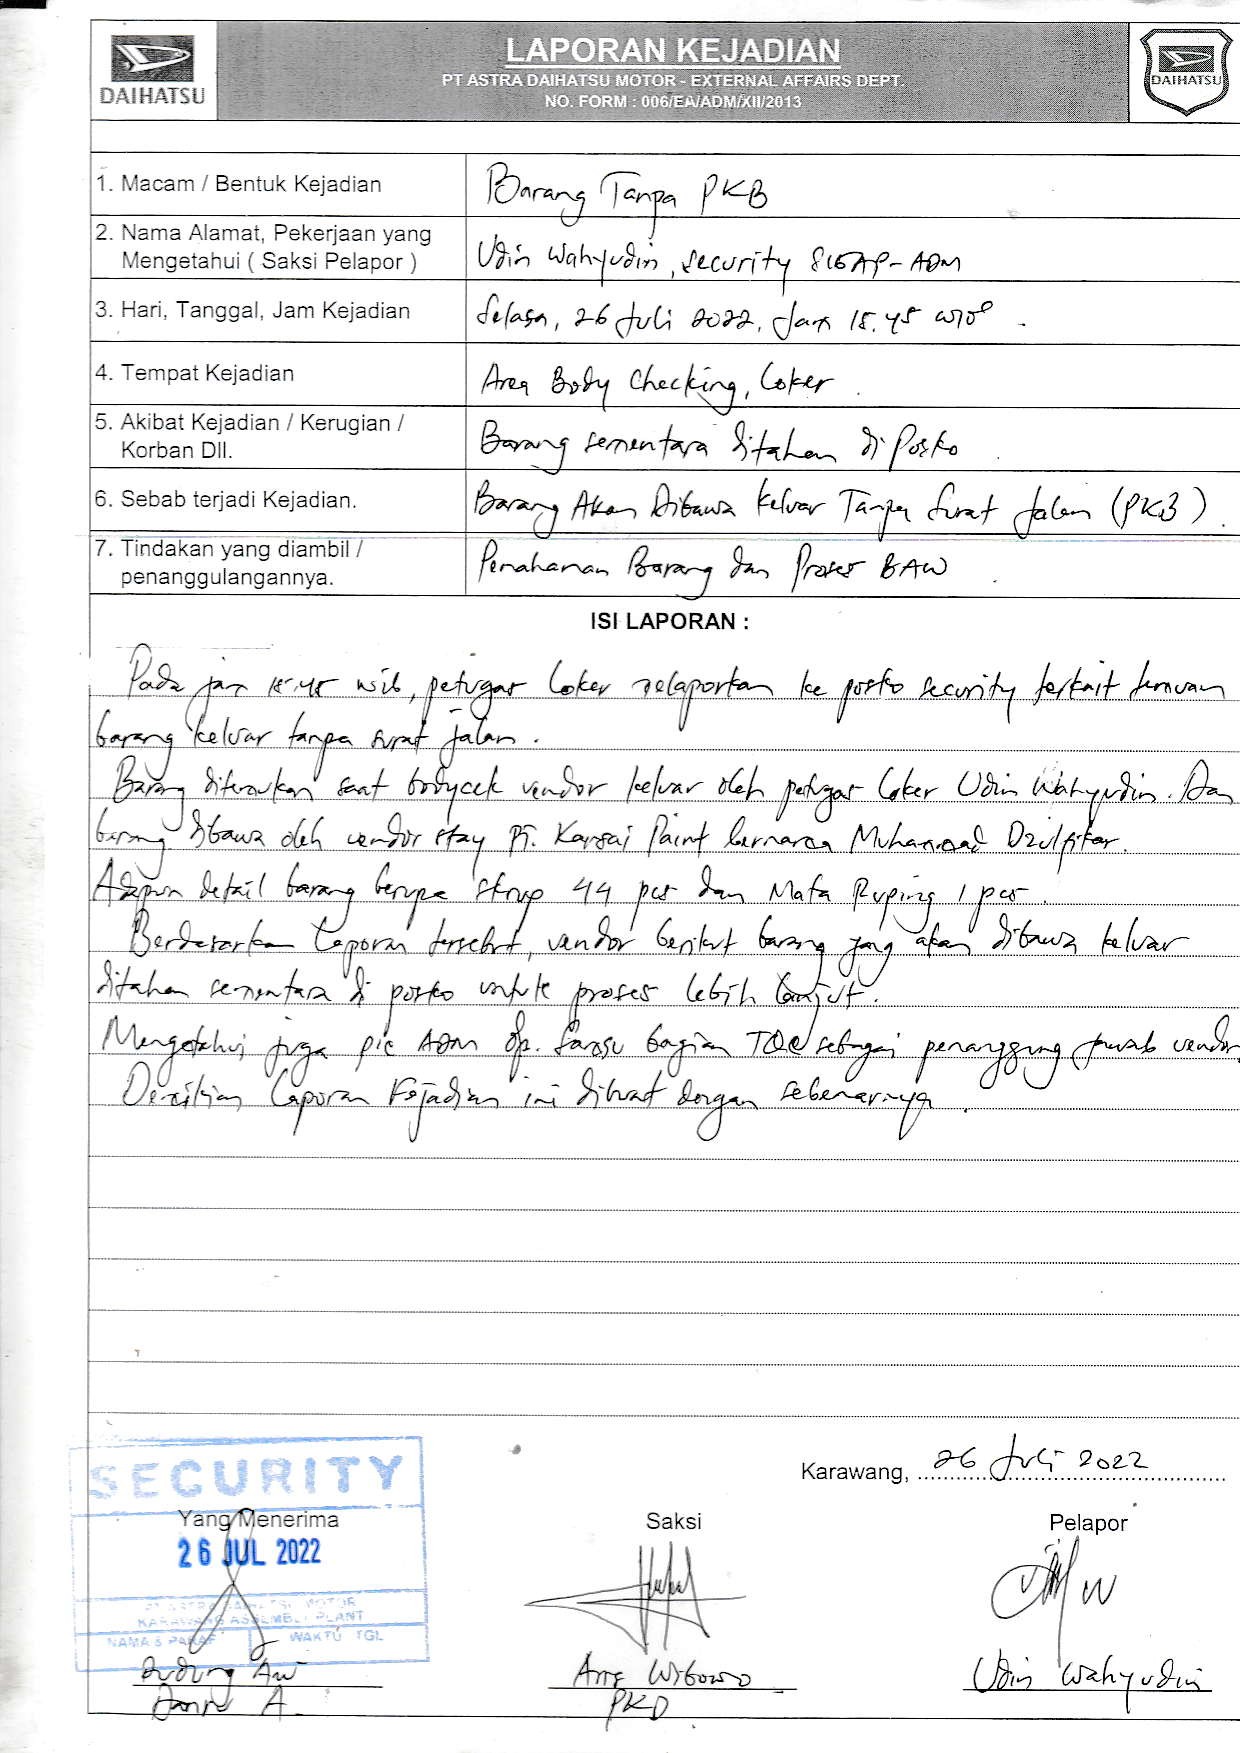 DAIHATSU
LAPORAN KEJADIAN
PT ASTRA DAIHATSU MOTOR - EXTERNAL AFFAIRS DEPT
NO. FORM : 006/EA/ADM/XII/2013
DAIHATSU
1. Macam / Bentuk Kejadian
Barang Tanpa PKB
2. Nama Alamat, Pekerjaan yang
Mengetahui ( Saksi Pelapor )
Udin Wahyudin, security SIGAP-ADM
3. Hari, Tanggal, Jam Kejadian
Selasa, 26 Juli 2022, Jam 15.45 WIB.
4. Tempat Kejadian
Area Body Checking, Loker.
5. Akibat Kejadian / Kerugian /
Korban Dll.
Barang sementara ditahan di Posko.
6. Sebab terjadi Kejadian.
Barang Akan Dibawa keluar Tanpa Surat Jalan (PKB).
7. Tindakan yang diambil /
penanggulangannya.
Penahanan Barang dan Proses BAW.
ISI LAPORAN :
Pada jam 15.45 wib, petugas Loker melaporkan ke posko security terkait temuan
barang keluar tanpa surat jalan.
Barang ditemukan saat bodycek vendor keluar oleh petugas Loker Udin Wahyudin. Dan
barang dibawa oleh vendor stay PT. Kansai Paint bernama Muhammad Dzulfikar.
Adapun detail barang berupa skrup 44 pcs dan Mata 1 pcs.
Berdasarkan Laporan tersebut, vendor berikut barang yang akan dibawa keluar
ditahan sementara di posko untuk proses lebih lanjut.
Mengetahui juga pic ADM bagian sebagai penanggung jawab vendor.
Demikian Laporan Kejadian ini dibuat dengan sebenarnya.
Karawang, 26 Juli 2022
SECURITY
Yang Menerima
Saksi
Pelapor
26 JUL 2022
PT ASTRA DAIHATSU MOTOR
KARAWANG ASSEMBLY PLANT
NAMA & PARAF
WAKTU TGL
Wibowo
Udin Wahyudin
PKD